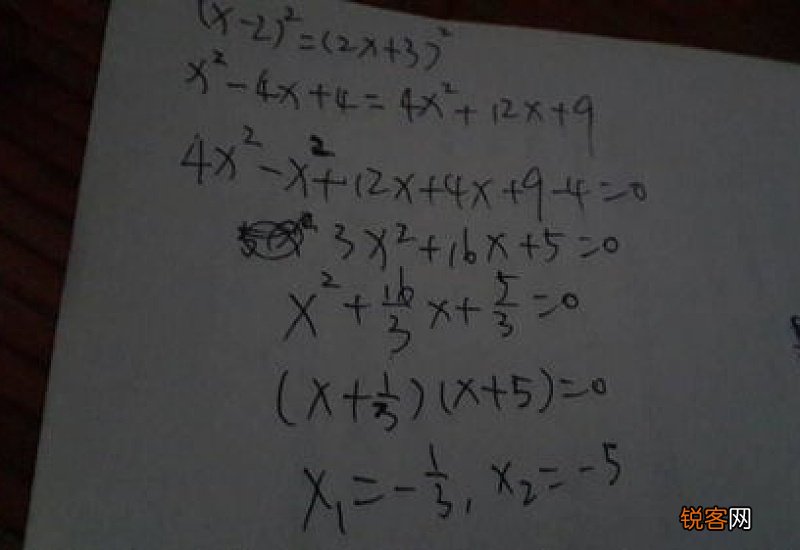 (x-2)²=(2x+3)²
x²-4x+4=4x²+12x+9
4x²-x²+12x+4x+9-4=0
3x²+16x+5=0
x²+16/3x+5/3=0
(x+1/3)(x+5)=0
x₁=-1/3, x₂=-5
锐客网